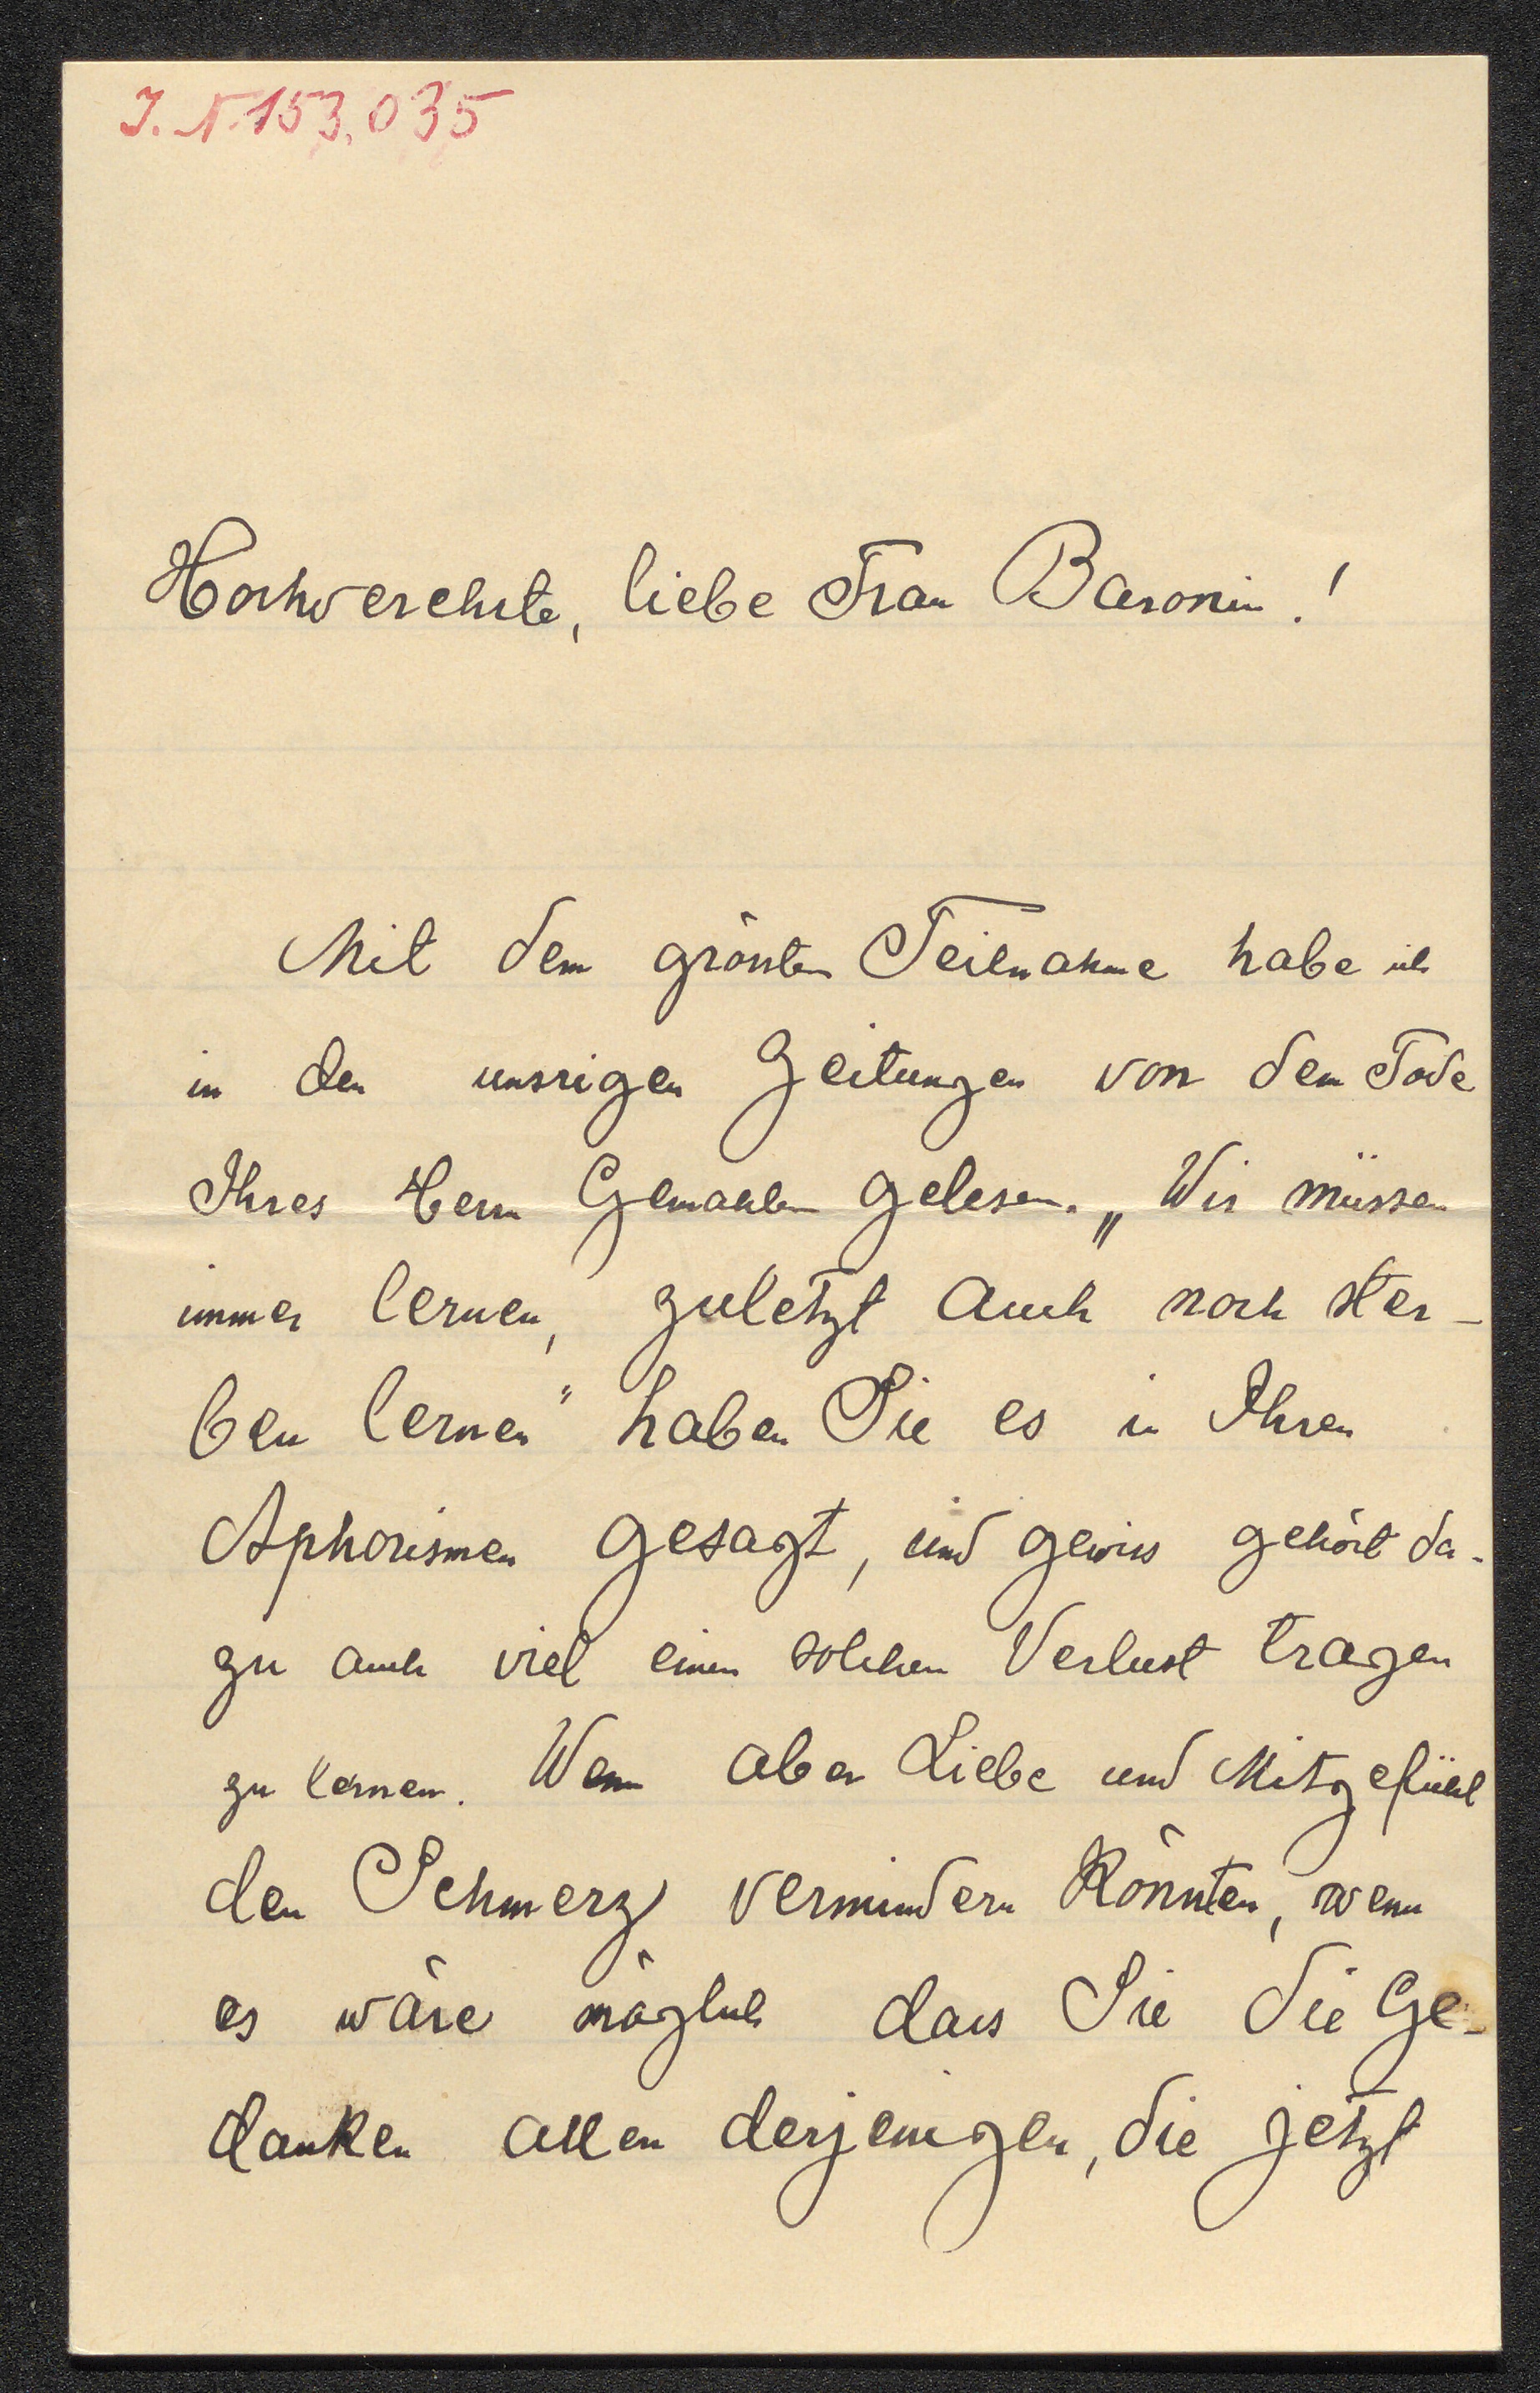 J. N. 153.035
Hochverehrte, liebe Frau Baronin!
Mit dem grössten Teilnahme habe ich
in den unsrigen Zeitungen von dem Tode
Ihres Herrn Gemahlen gelesen. „Wir müssen
immer lernen, zuletzt auch noch ster-
ben lernen“ haben Sie es in Ihren
Aphorismen gesagt, und gewiss gehört da-
zu auch viel einen solchen Verlust tragen
zu lernen. Wenn aber Liebe und Mitgefühl
den Schmerz vermindern könnten, wenn
es wäre möglich dass Sie die Ge-
danken allen derjenigen, die jetzt